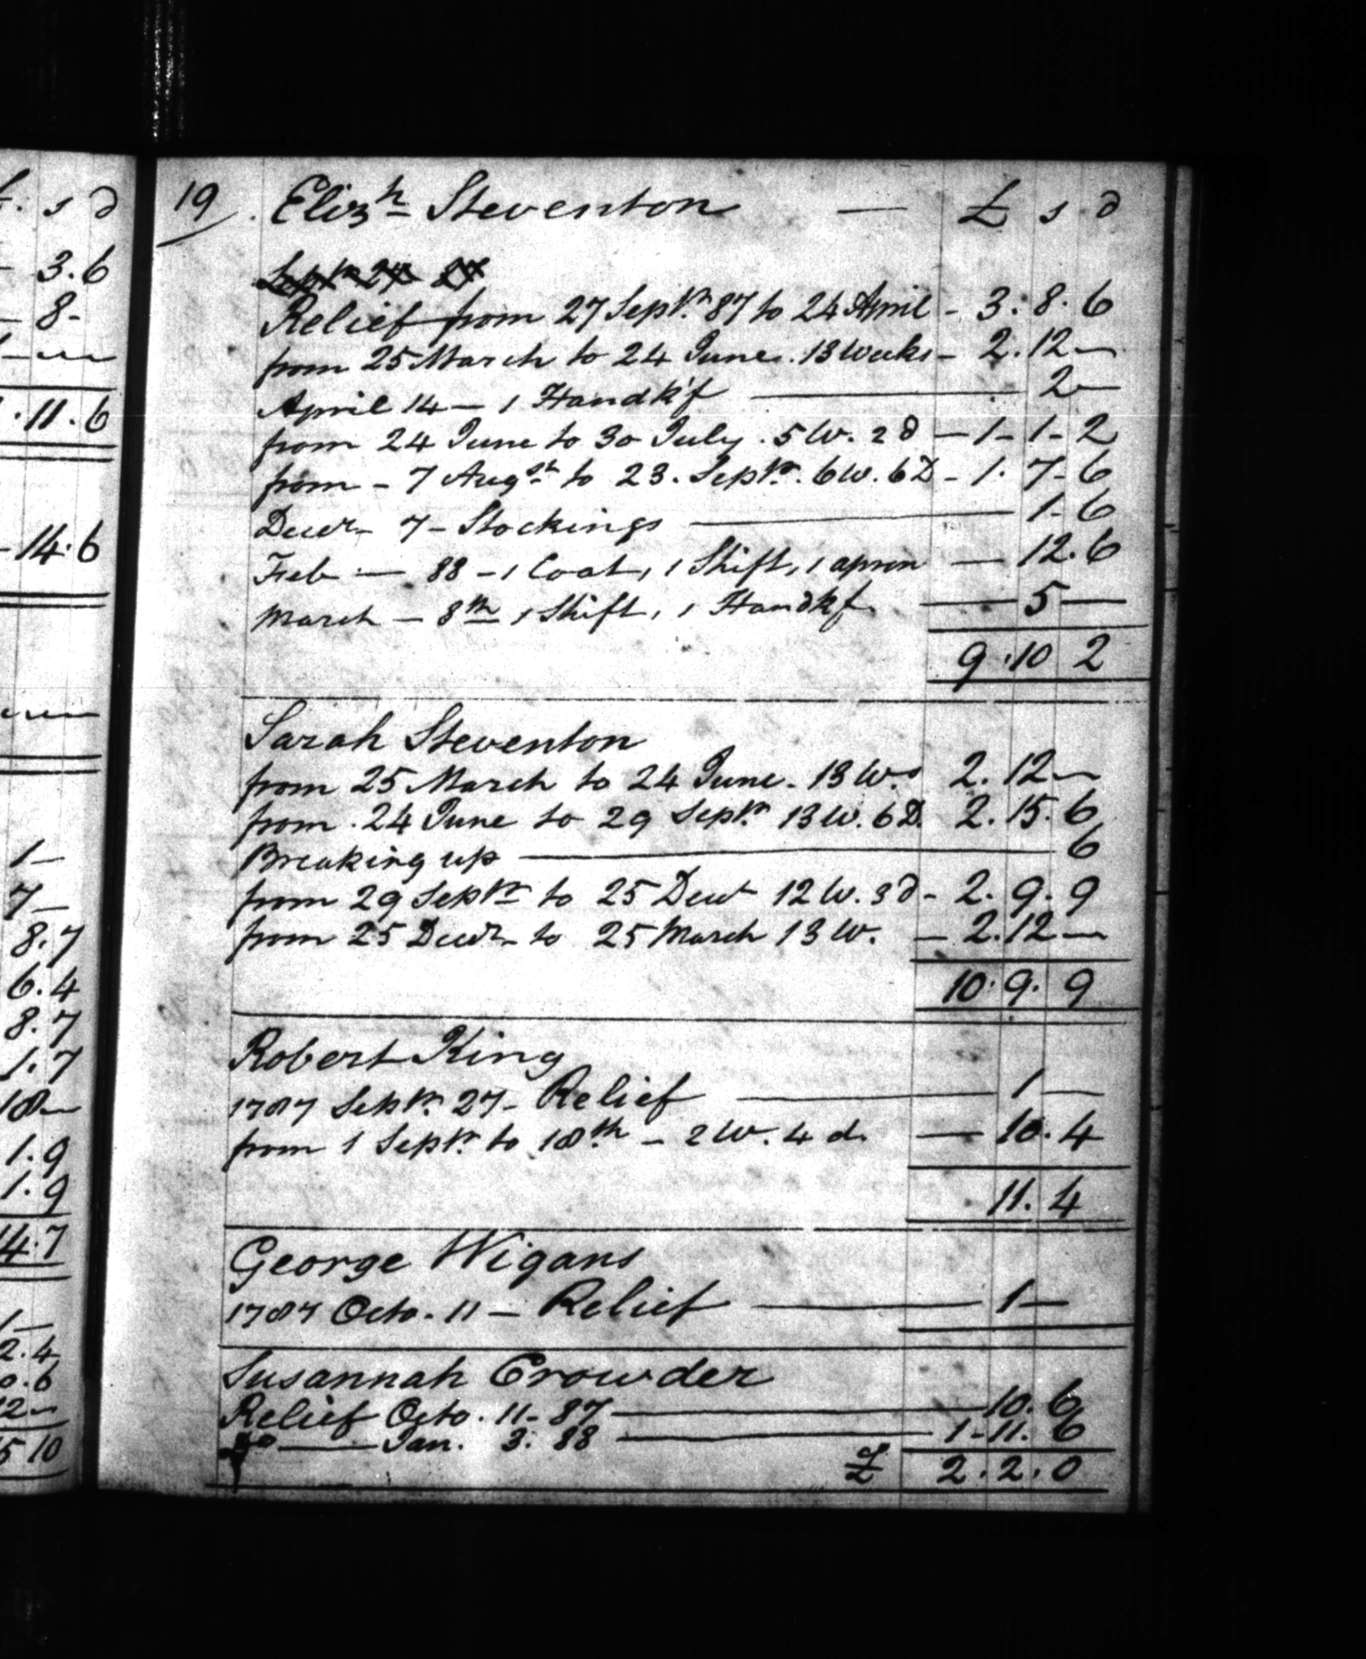 £. s d
3.6
8-
1.11.6
-14.6
1-
7-
8.7
6.4
8.7
1.7
18-
1.9
1.9
14.7
1-
2.4
0.6
12-
15 10
19 Elizh Steventon — £ s d
Relief from 27 Septr. 87 to 24 April - 3. 8. 6
from 25 March to 24 June. 13 Weeks - 2. 12 -
April 14 - 1 Handk'f — 2 -
from 24 June to 30 July. 5 W. 2 d - 1 - 1 - 2
from - 7 Augst to 23. Septr. 6 W. 6 D - 1. 7 - 6
Decr - 7 - Stockings — 1 - 6
Feb — 88 - 1 Coat, 1 Shift, 1 apron — 12. 6
March - 8th 1 Shift, 1 Handkf. — 5 —
9. 10 2
Sarah Steventon
from 25 March to 24 June - 13 Ws 2. 12 -
from 24 June to 29 Septr 13 W. 6 D. 2. 15. 6
Breaking up — 6
from 29 Septr to 25 Decr 12 W. 3 d - 2. 9. 9
from 25 Decr - to 25 March 13 W. - 2. 12 -
10. 9. 9
Robert King
1787 Septr. 27 - Relief — 1 —
from 1 Septr. to 18th - 2 W. 4 d. — 10. 4
11. 4
George Wigans
1787 Octo. 11 - Relief — 1 —
Susannah Crowder
Relief Octo. 11 - 87 — 10. 6
Do — Jan. 3. 88 — 1 - 11. 6
£ 2. 2. 0